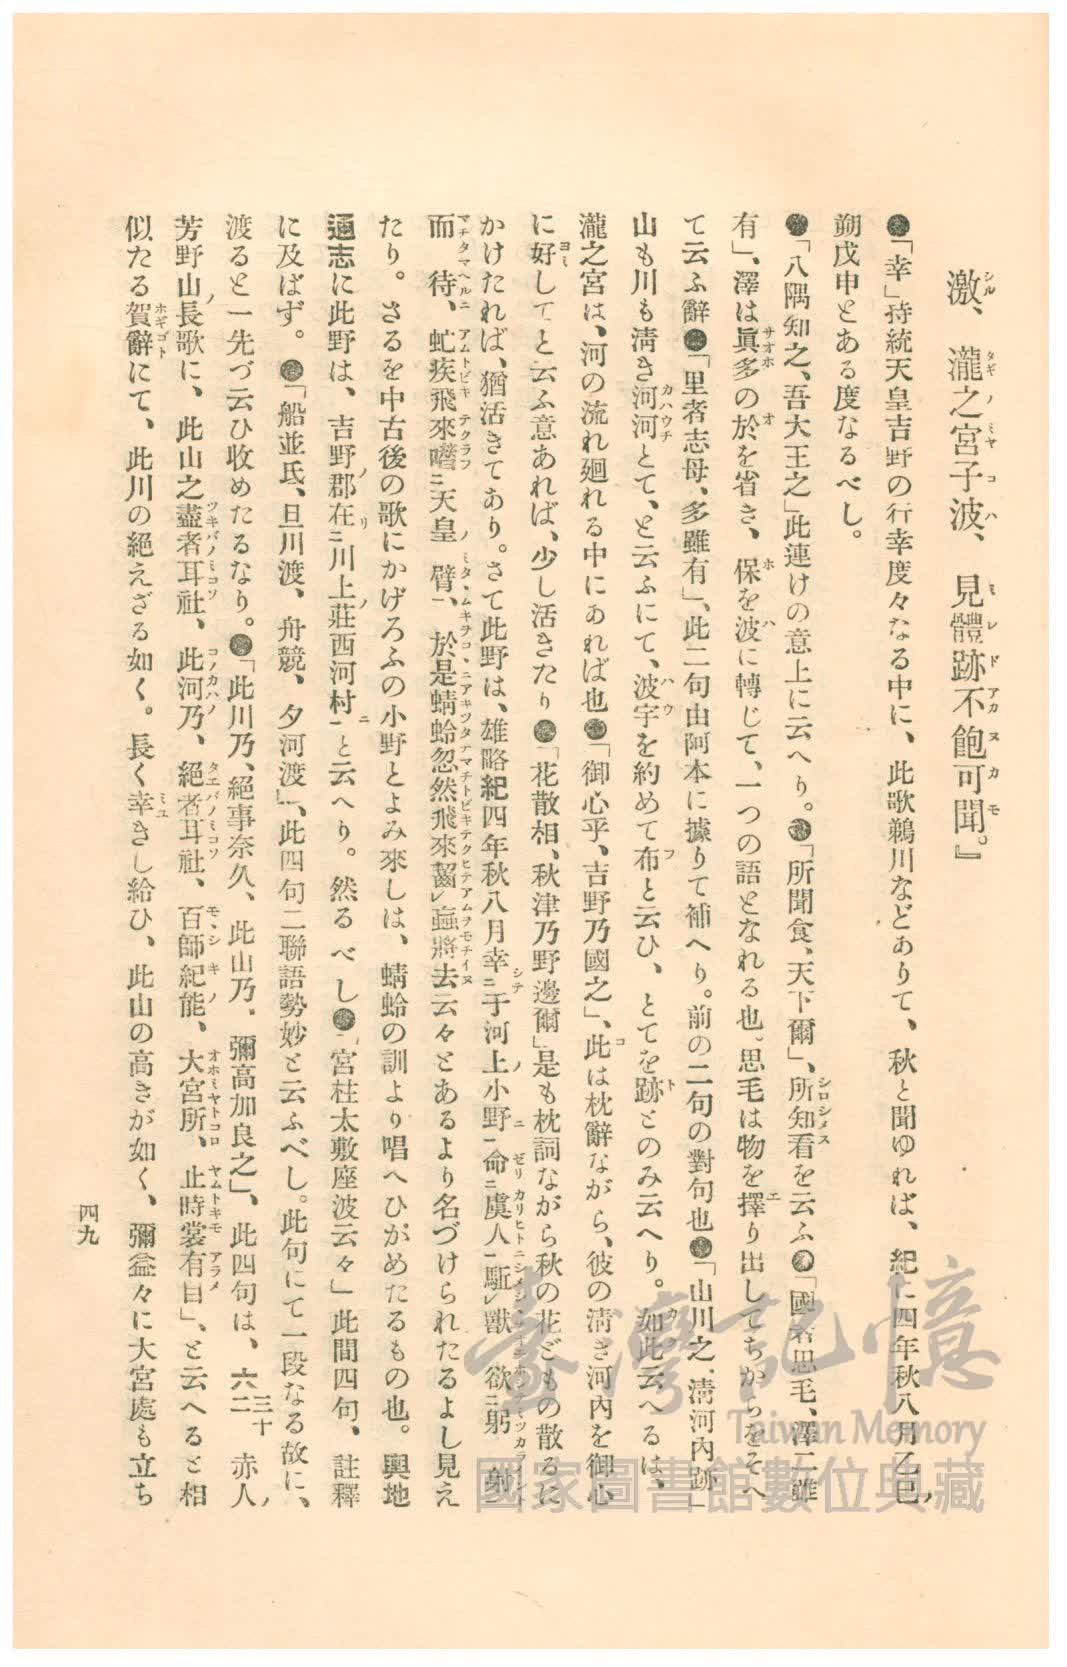 激、瀧之宮子波、見體跡不飽可聞。』
●「幸」持統天皇吉野の行幸度々なる中に、此歌鵜川などありて、秋と聞ゆれば、紀に四年秋八月乙巳ノ
朔戊申とある度なるべし。
●「八隅知之、吾大王之」此連けの意上に云へり。●「所聞食、天下爾」、所知看を云ふ●「國者思毛、澤二雖
有」、澤は眞多の於を省き、保を波に轉じて、一つの語となれる也。思毛は物を擇り出してちからをそへ
て云ふ辭●「里者志母、多雖有」、此二句由阿本に據りて補へり。前の二句の對句也●「山川之、淸河內跡」
山も川も淸き河河とて、と云ふにて、波宇を約めて布と云ひ、とてを跡とのみ云へり。如此云へるは、
瀧之宮は、河の流れ廻れる中にあれば也●「御心乎、吉野乃國之」、此は枕辭ながら、彼の淸き河內を御心
に好してと云ふ意あれば、少し活きたり●「花散相、秋津乃野邊爾」是も枕詞ながら秋の花どもの散るに
かけたれば、猶活きてあり。さて此野は、雄略紀四年秋八月幸ニ于河上小野ニ命ニ虞人ニ駈レ獸欲ニ躬射ニ
而待、虻疾飛來噆ニ天皇臂ニ、於是蜻蛉忽然飛來齧レ蝱將去云々とあるより名づけられたるよし見え
たり。さるを中古後の歌にかげろふの小野とよみ來しは、蜻蛉の訓より唱へひがめたるもの也。輿地
通志に此野は、吉野郡在ニ川上莊西河村ニと云へり。然るべし●「宮柱太敷座波云々」此間四句、註釋
に及ばず。●「船並氐、旦川渡、舟競、夕河渡」、此四句二聯語勢妙と云ふべし。此句にて一段なる故に、
渡ると一先づ云ひ收めたるなり。●「此川乃、絕事奈久、此山乃、彌高加良之」、此四句は、六二三十赤人ノ
芳野山ノ長歌に、此山之盡者耳社、此河乃、絕者耳社、百師紀能、大宮所、止時裳有目」、と云へると相
似たる賀辭にて、此川の絕えざる如く。長く幸きし給ひ、此山の高きが如く、彌益々に大宮處も立ち
四九
臺灣記憶
Taiwan Memory
國家圖書館數位典藏